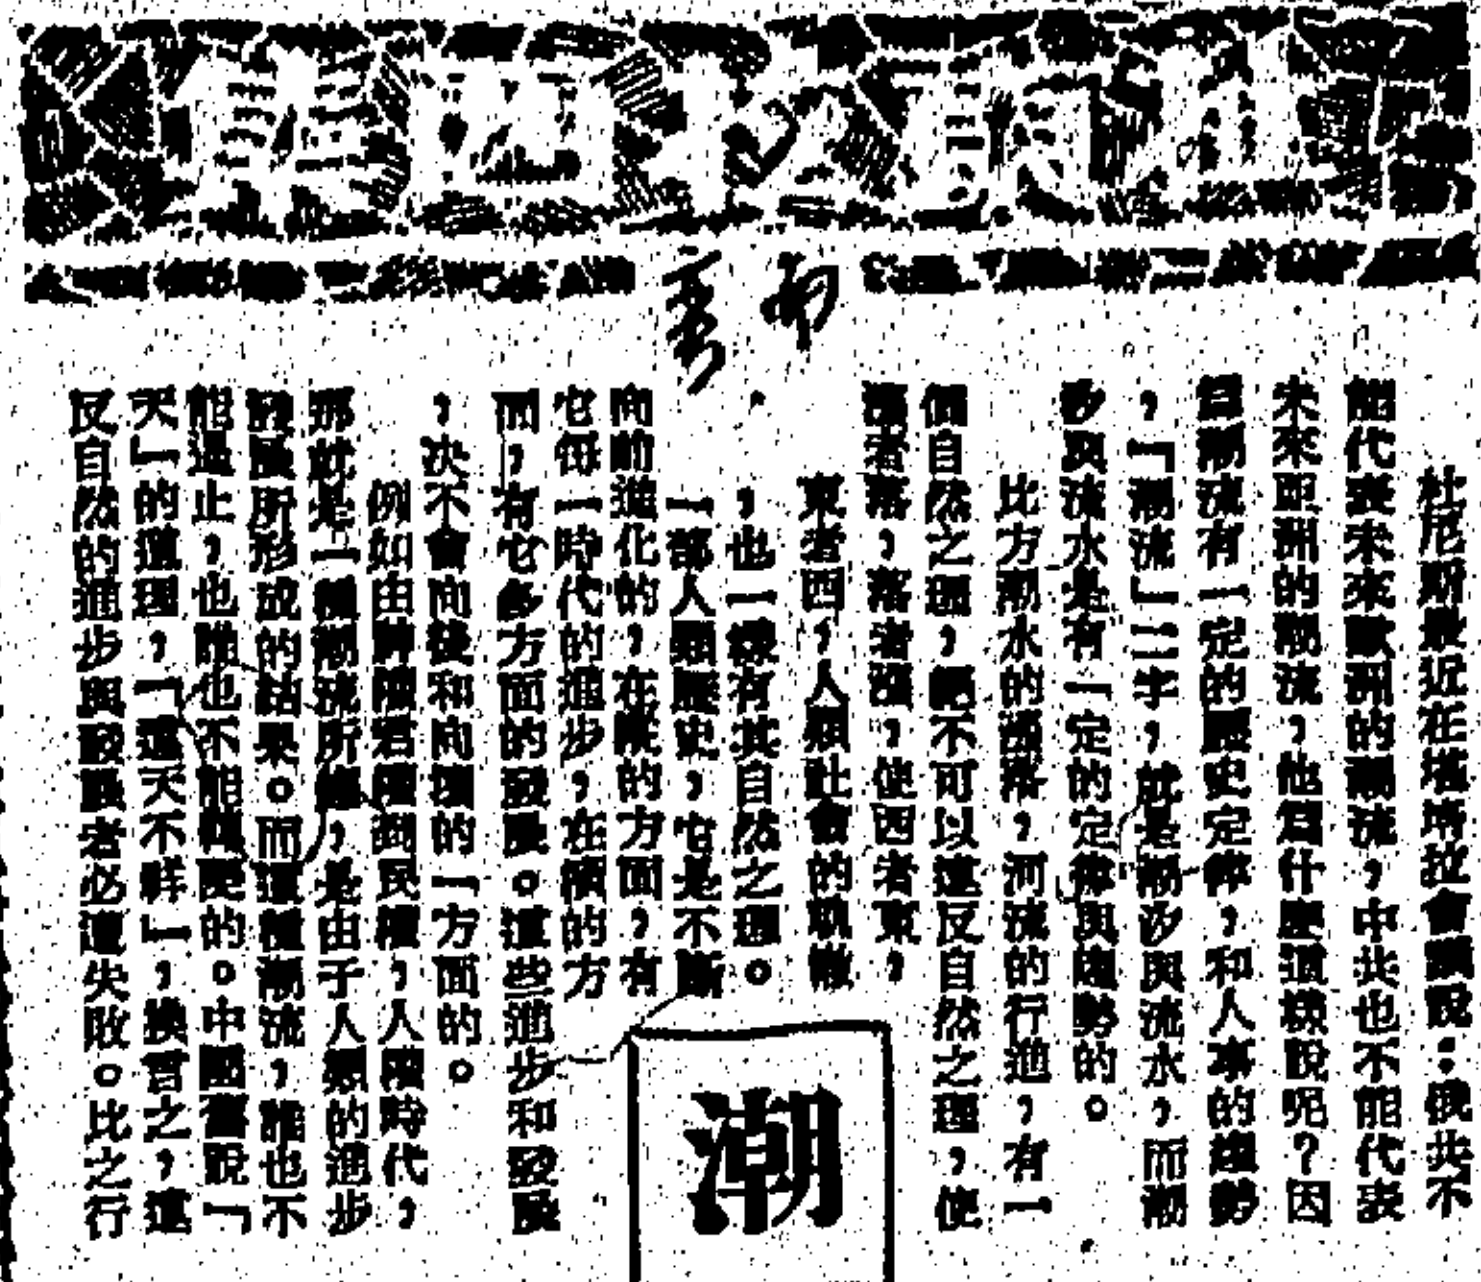 杜尼斯最近在塔培拉會議說：俄共不
能代表未來歐洲的潮流，中共也不能代表
未來亞洲的潮流，他為什麼這樣說呢？因
為潮流有一定的歷史定律，和人事的趨勢
，「潮流」二字，就是潮汐與流水，而潮
汐與流水是有一定的定律與趨勢的。
比方潮水的漲落，河流的行進，有一
個自然之理，絕不可以違反自然之理，使
漲者落，落者漲，使西者東，
東者西，人類社會的軌轍
，也一樣有其自然之理。
一部人類歷史，它是不斷
向前進化的，在縱的方面，有
它每一時代的進步，在橫的方
面，有它多方面的發展。這些進步和發展
，決不會向後和向壞的一方面的。
例如由神權君權到民權，人權時代，
那就是一種潮流所趨，是由于人類的進步
發展所形成的結果。而這種潮流，誰也不
能遏止，也誰也不能轉變的。中國舊說「
天」的道理，「違天不祥」，換言之，違
反自然的進步與發展者必遭失敗。比之行
潮